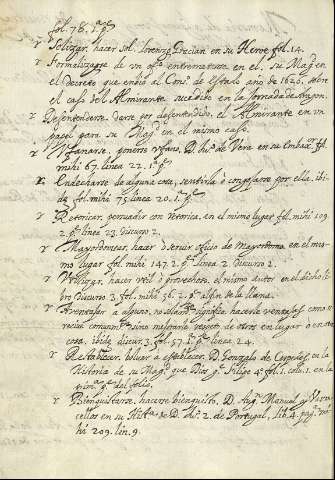 fol. 78, 1. pº
r Solizar, hacer sol. Lorenzo Grecian en su Heroe fol. 14.
r Formalizarse de un ofº entremeterse en el. su Magd en
el decreto que enbió al Consº de Estado año de 1626, sobre
el caso del Almirante sucedido en la Jornada de Aragon.
r Defenderse. Darse por defendido, el Almirante en un
papel para su Magd en el mismo caso.
r ponerse ufano, D. Juº de Vera en su Embaxr fol.
mihi 67. linea 22. 1. pº
r Endecharse de alguna cosa, sentirla ó congojarse por ella. ibi-
de fol. mihi 75 linea 20. 1. pº
r Retoricar, persuadir con retorica, en el mismo lugar fol. mihi 109
2. pº linea 23. discurso 2.
r Mayordomear, hacer ó servir oficio de Mayordomo. en el mis-
mo lugar fol. mihi 147. 2. pº linea 2. discurso 2.
r Utilizar, hacer util ó provechoso, el mismo autor en el dicho li-
bro discurso 3. fol. mihi 56. 2. pº al fin de la llana.
r Aventajar a alguno, no solamte significa hacerle ventajas como se
recive comunmte sino mejorarle respecto de otro en lugar ó en otra
cosa, ibide discur. 3. fol. 57. 1. pº linea 24.
r Restablecer, boluer a establecer. D. Gonzalo de Cespedes en la
historia de su Magd que Dios gº Filipe 4º fol. 1. colu. 1. en la
prinª del folio.
r Bienquistarse, hacerse bienquisto, D. Augº Manuel y Vascon-
cellos en su Histª de D. Juº 2. de Portugal, lib. 4. pag. mi-
hi 209. lin. 9.